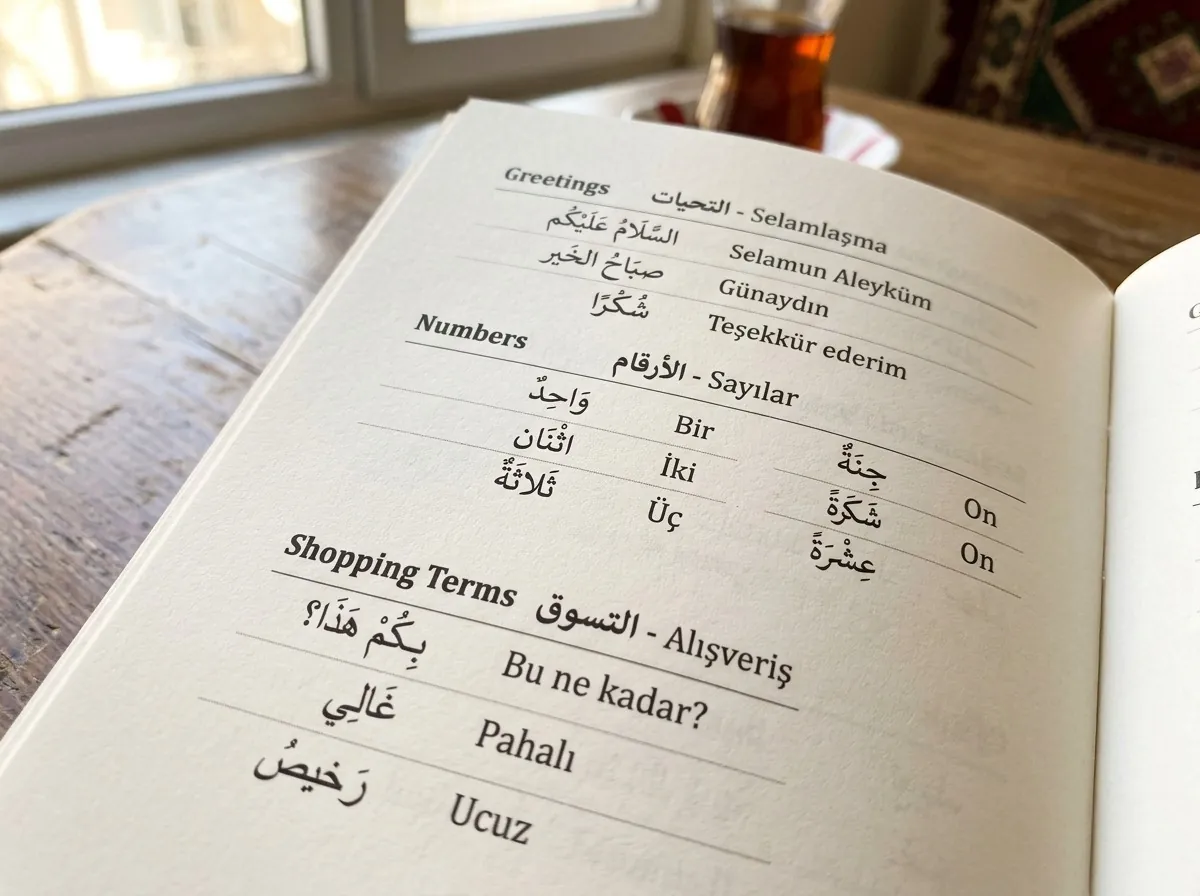 Greetings التحيات - Selamlaşma
السَّلَامُ عَلَيْكُم Selamun Aleyküm
صبَاحُ الخَير Günaydın
شُكْرًا Teşekkür ederim
Numbers الأرقام - Sayılar
وَاحِدٌ Bir
اثْنَان İki
ثَلاثَةٌ Üç
جِنَةٌ On
شَكَرَةً On
عِشْرَةً
Shopping Terms التسوق - Alışveriş
بِكُمْ هَذَا؟ Bu ne kadar?
غَالِي Pahalı
رَخيصُ Ucuz